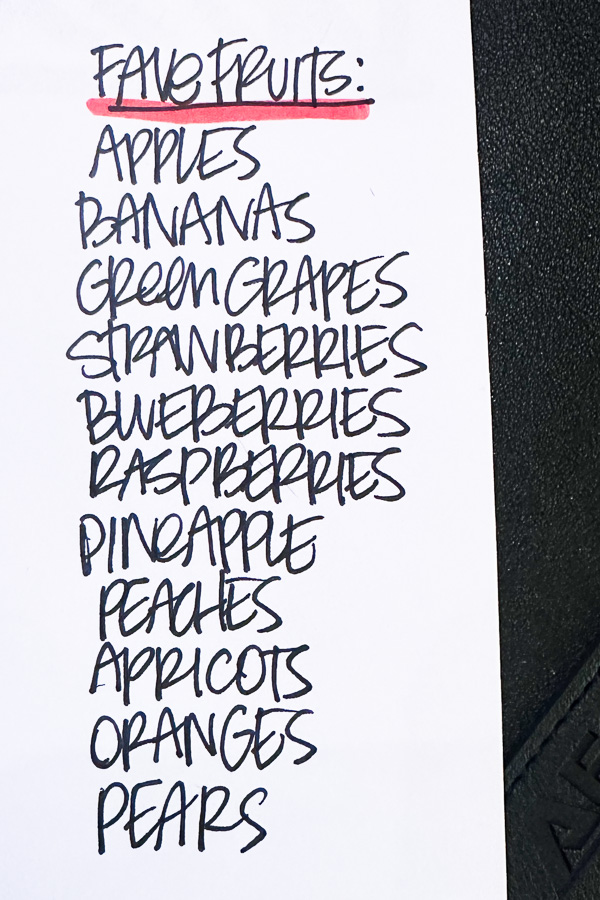 FAVE FRUITS:
APPLES
BANANAS
GREEN GRAPES
STRAWBERRIES
BLUEBERRIES
RASPBERRIES
PINEAPPLE
PEACHES
APRICOTS
ORANGES
PEARS